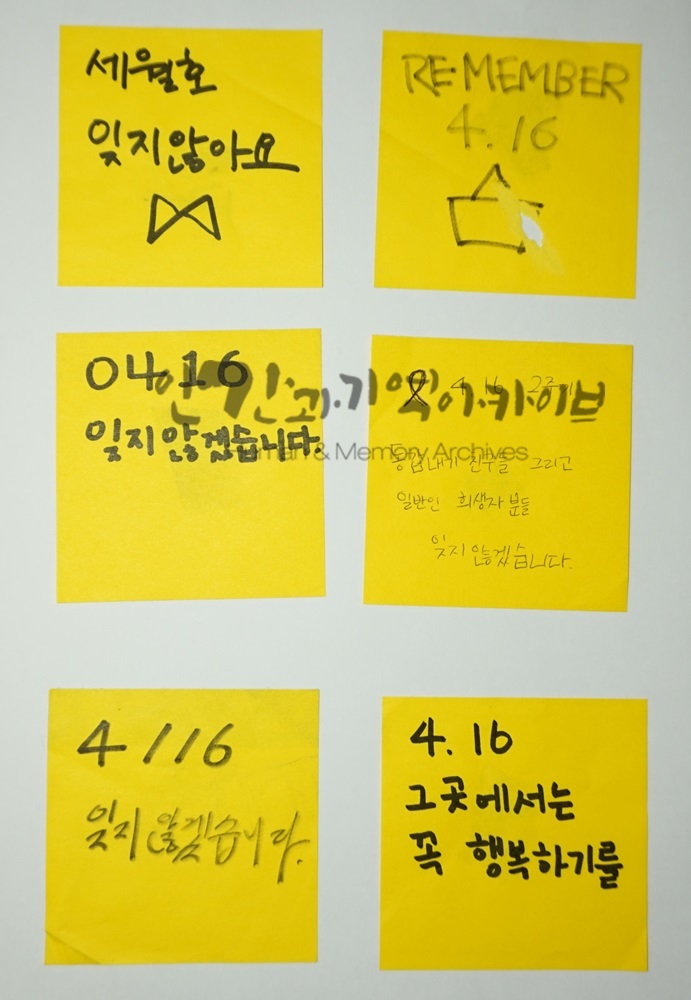 세월호
잊지않아요
RE·MEMBER
4. 16
04.16
잊지않겠습니다.
4. 16 2주기
동갑내기 친구들 그리고
일반인 희생자 분들
잊지 않겠습니다.
인간과 기억아카이브
Human & Memory Archives
4 / / 16
잊지 않겠습니다.
4. 16
그곳에서는
꼭 행복하기를